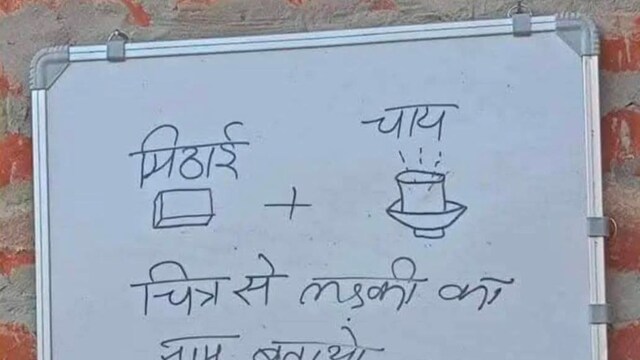 चाय
मिठाई
+
चित्र से लड़की का
नाम बताओ